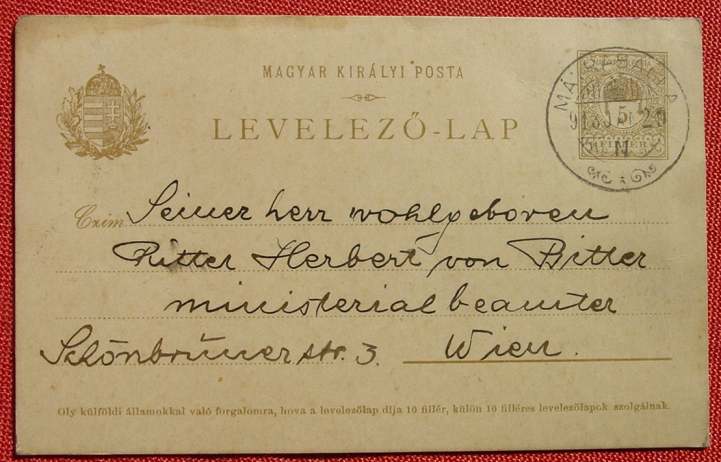 MAGYAR KIRÁLYI POSTA
LEVELEZŐ-LAP
5
FILLÉR
N
Czim
Seiner herr wohlgeboren
Ritter Herbert von Bitter
ministerialbeamter
Schönbrünerstr. 3. Wien.
Oly külföldi államokkal való forgalomra, hova a levelezőlap dija 10 fillér, külön 10 filléres levelezőlapok szolgálnak.